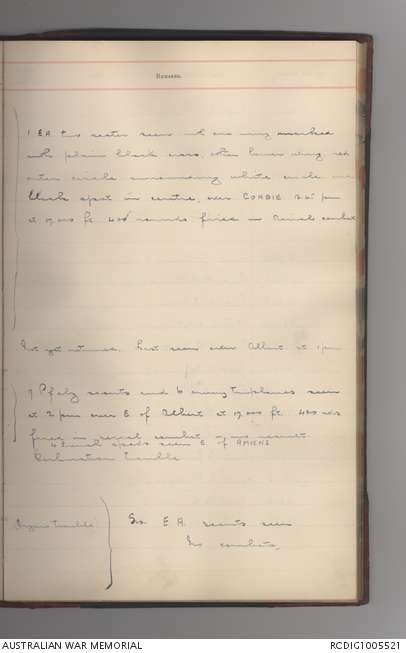 REMARKS.
1 EA two seater seen with one wing marked
with plain black cross, other lower wing red
outer circle surrounding white circle
black spot in centre, over CORBIE 2.45 pm
at 17,000 ft. 400 rounds fired in Aerial combat
Not yet returned. Last seen over Albert at 1 pm
9 Pfalz scouts and 6 enemy triplanes seen
at 2 pm over E of Albert at 17,000 ft. 400 rds
fired in aerial combat no result.
seen E of AMIENS
trouble
Engine trouble
Six E.A. scouts seen
No combats,
AUSTRALIAN WAR MEMORIAL
RCDIG1005521